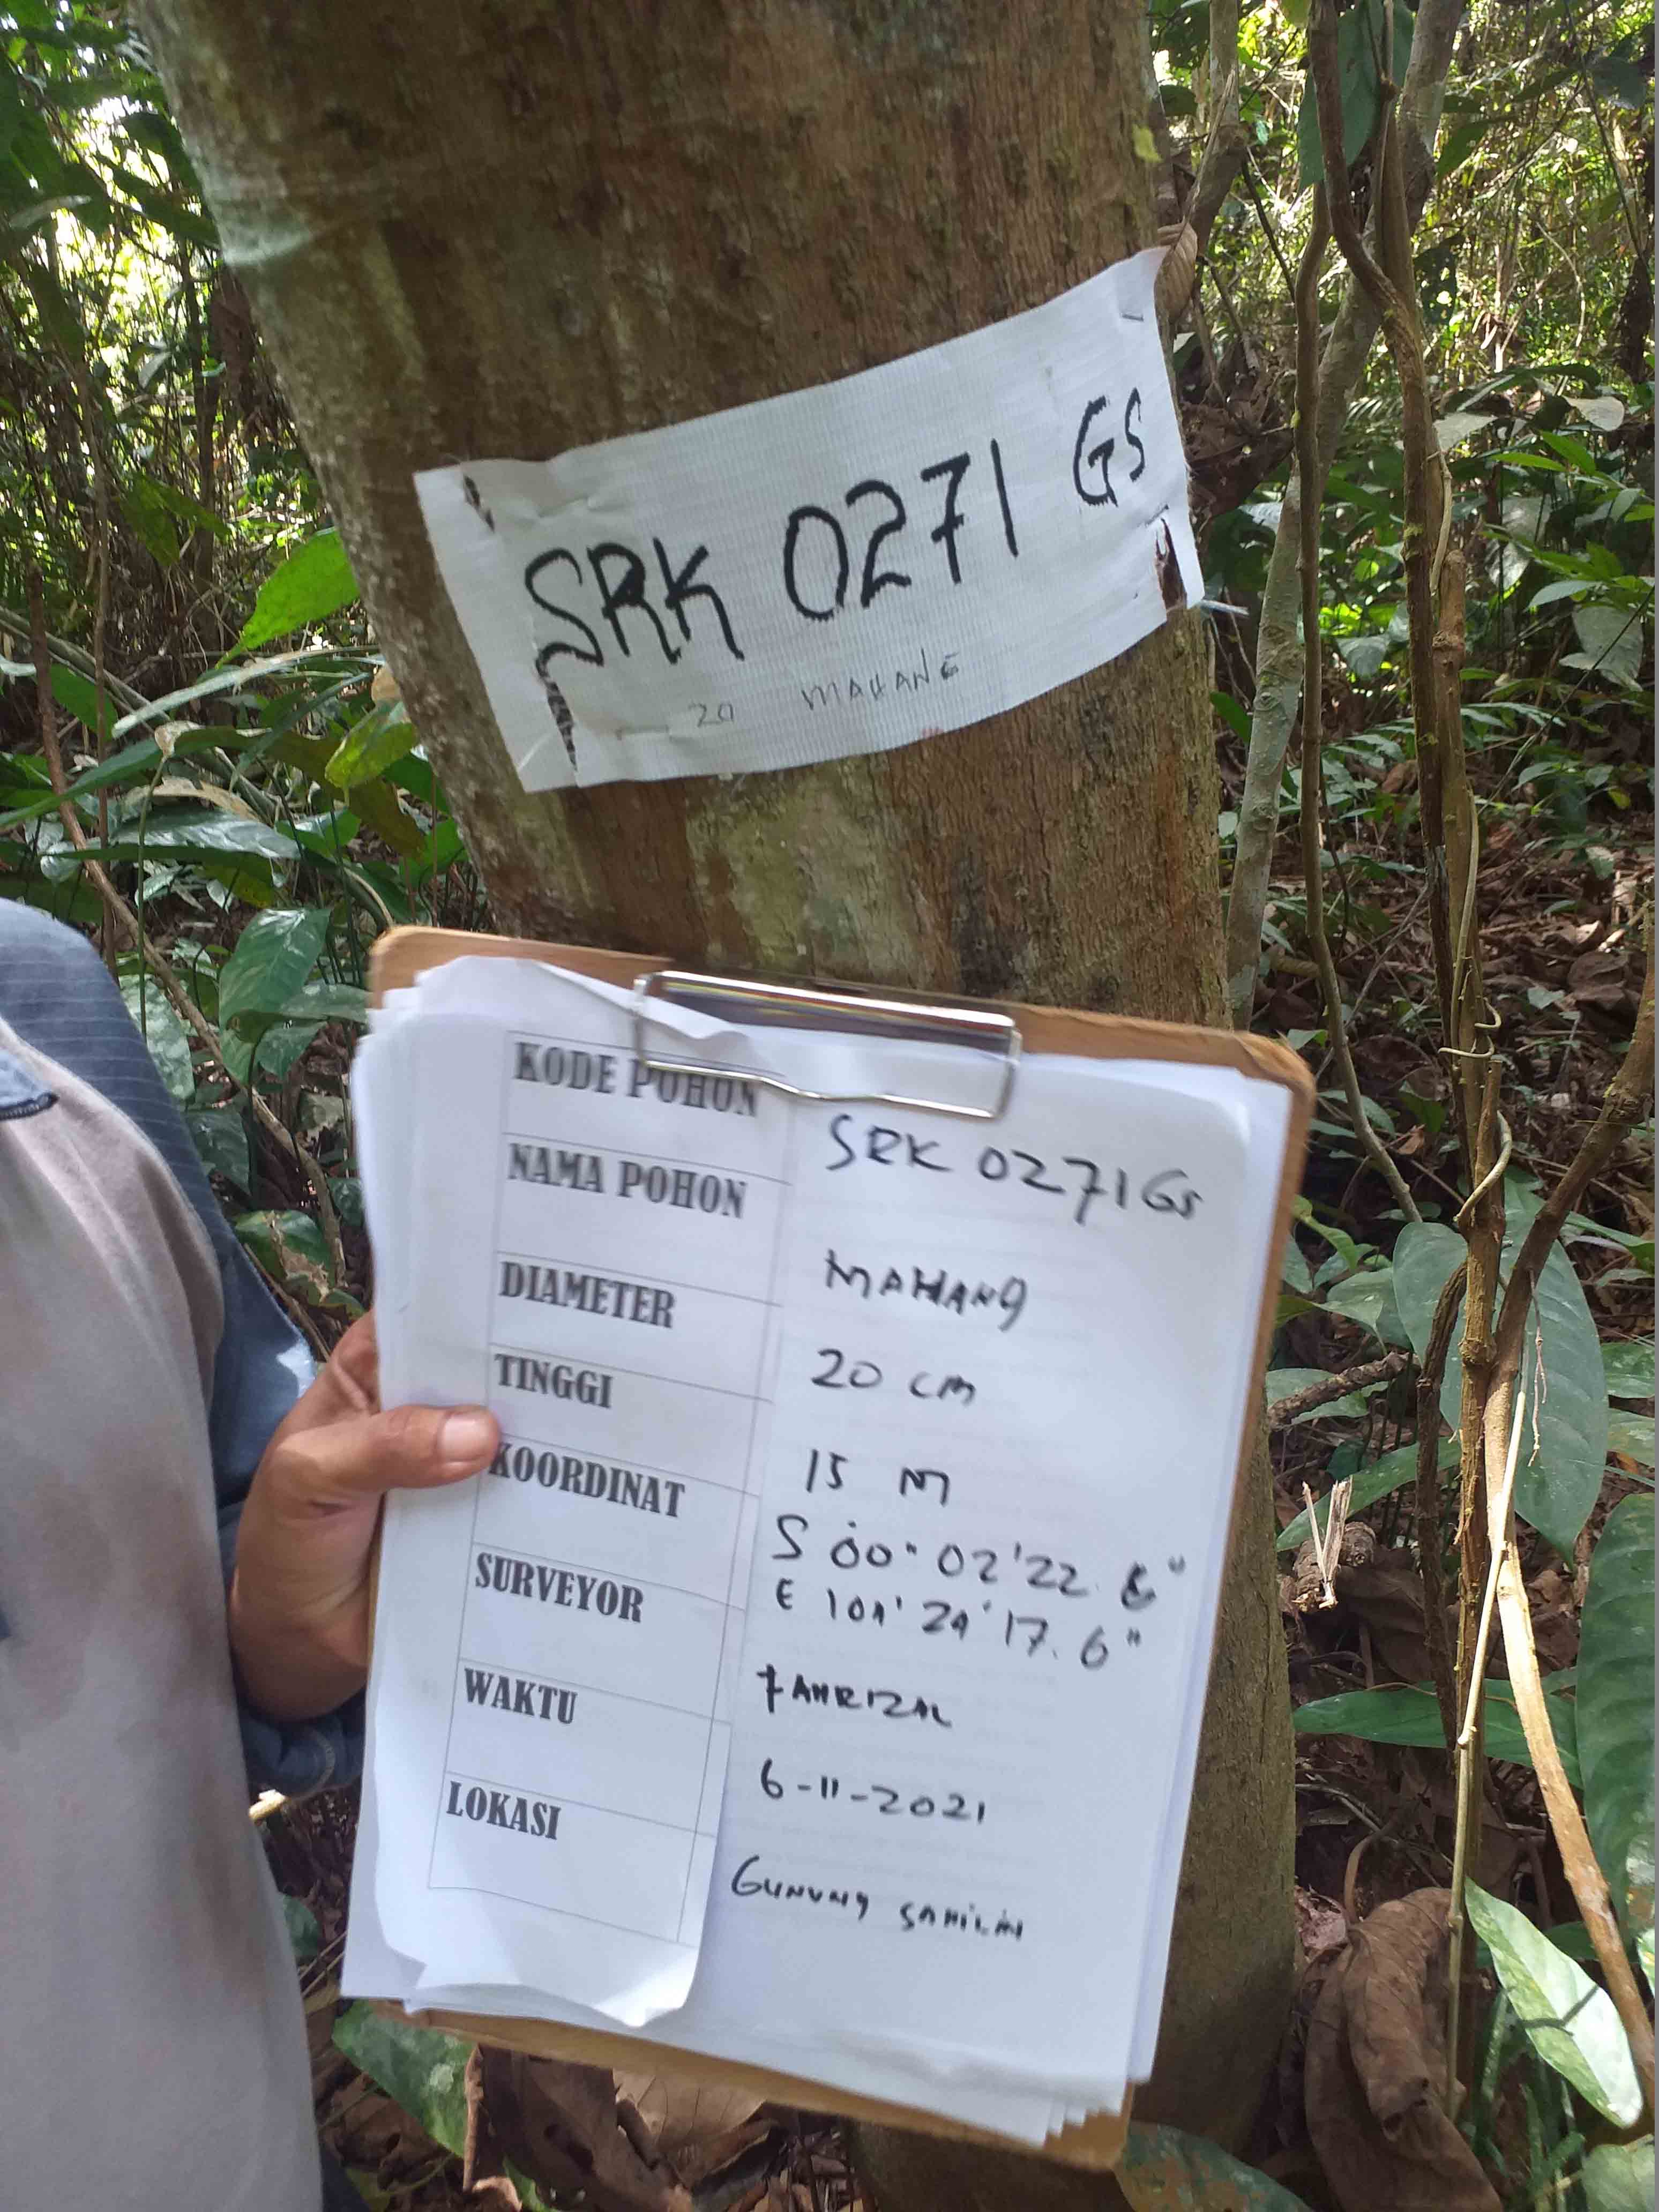 SRK 0271 GS
20 MAHANG
KODE POHON SRK 0271 GS
NAMA POHON MAHANG
DIAMETER 20 CM
TINGGI 15 M
KOORDINAT S 00° 02'22.
E 101' 17.6"
SURVEYOR FAHRIZAL
WAKTU 6-11-2021
LOKASI GUNUNG SAHILAN